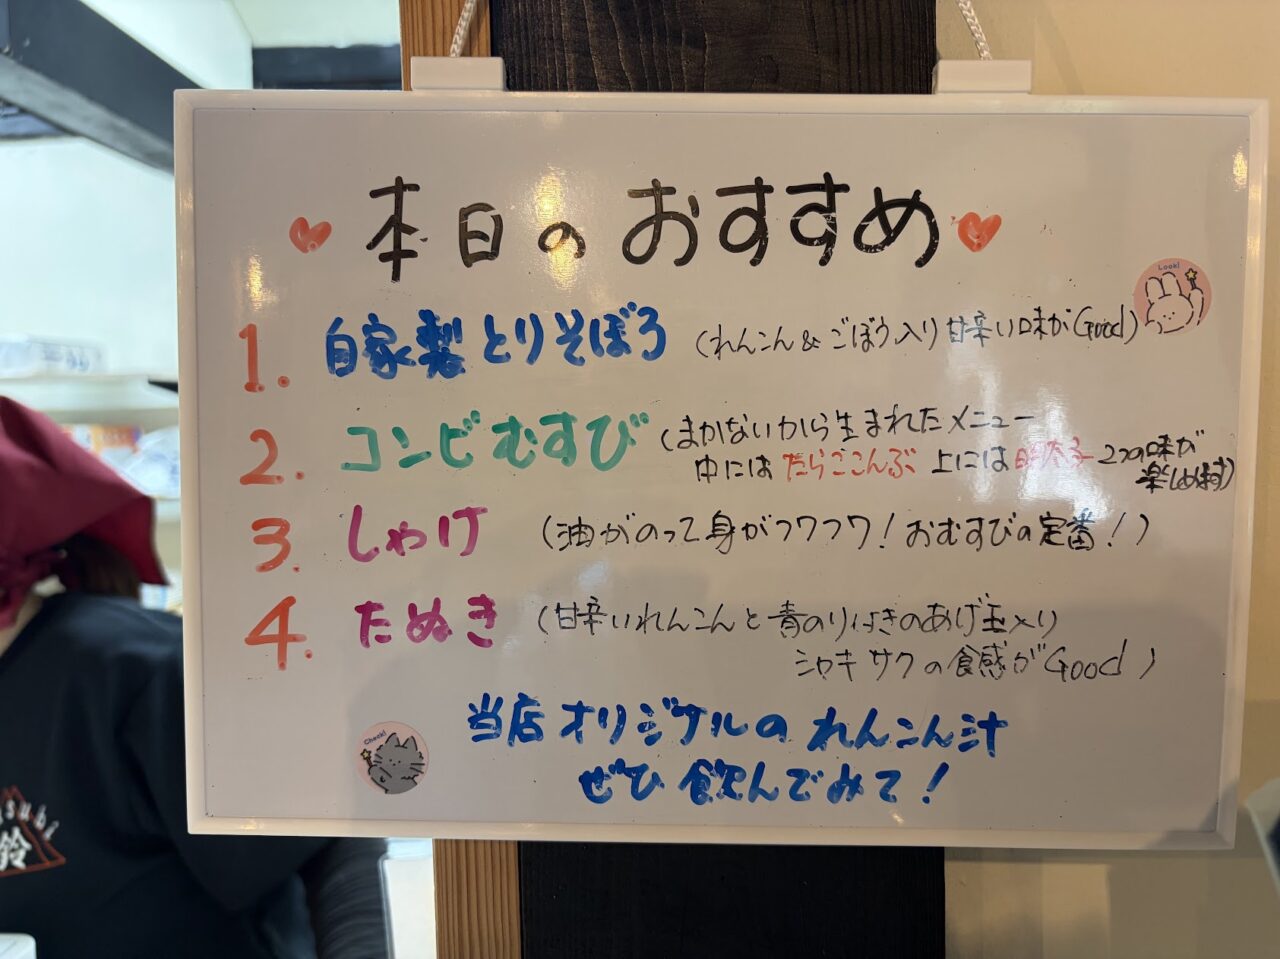 本日のおすすめ
Look!
1. 自家製とりそぼろ (れんこん&ごぼう入り 甘辛い味がGood)
2. コンビむすび (まかないから生まれたメニュー
中には たらここんぶ 上には 明太子 2つの味が
楽しめます)
3. しゃけ (油がのって身がフワフワ!おむすびの定番!)
4. たぬき (甘辛いれんこんと青のり付きのあげ玉入り
シャキサクの食感がGood)
Check!
当店オリジナルの れんこん汁
ぜひ 飲んでみて!
鈴